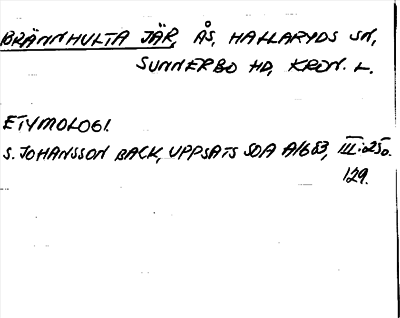 BRÄNNHULTA JÄR, ÅS, HALLARYDS SN,
SUNNERBO HD, KRON. L.
ETYMOLOGI.
S. JOHANSSON BACK, UPPSATS SOA A1683, III:250.
129.